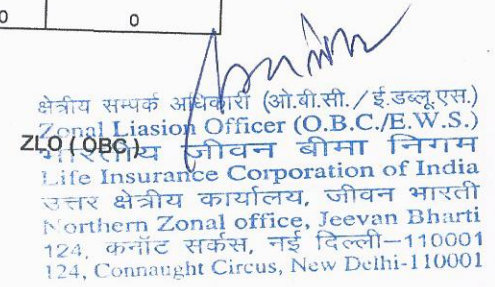 0 0
क्षेत्रीय सम्पर्क अधिकारी (ओ.बी.सी./ई.डब्लू.एस.)
Zonal Liasion Officer (O.B.C./E.W.S.)
ZLO ( OBC )
भारतीय जीवन बीमा निगम
Life Insurance Corporation of India
उत्तर क्षेत्रीय कार्यालय, जीवन भारती
Northern Zonal office, Jeevan Bharti
124, कनॉट सर्कस, नई दिल्ली–110001
124, Connaught Circus, New Delhi-110001